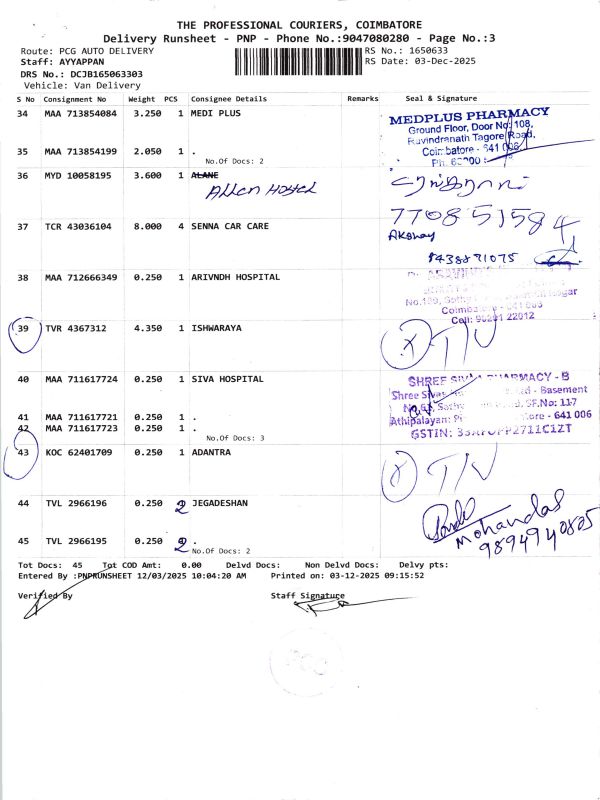 THE PROFESSIONAL COURIERS, COIMBATORE
Delivery Runsheet - PNP - Phone No.:9047080280 - Page No.:3
Route: PCG AUTO DELIVERY RS No.: 1650633
Staff: AYYAPPAN RS Date: 03-Dec-2025
DRS No.: DCJB165063303
Vehicle: Van Delivery
S No Consignment No Weight PCS Consignee Details Remarks Seal & Signature
34 MAA 713854084 3.250 1 MEDI PLUS
MEDPLUS PHARMACY
Ground Floor, Door No: 108,
Ravindranath Tagore Road,
35 MAA 713854199 2.050 1 . Coimbatore - 641 006
No.Of Docs: 2
36 MYD 10058195 3.600 1 ALANE
Allen Hostel
7708 51584
37 TCR 43036104 8.000 4 SENNA CAR CARE
Akshay
8438871075
38 MAA 712666349 0.250 1 ARIVNDH HOSPITAL
Cell: 98201 22012
39 TVR 4367312 4.350 1 ISHWARAYA
T/V
40 MAA 711617724 0.250 1 SIVA HOSPITAL
SHREE SIVA PHARMACY - B
Shree Sivas Road - Basement
SF.No: 117
41 MAA 711617721 0.250 1 .
Athipalayam Coimbatore - 641 006
42 MAA 711617723 0.250 1 .
No.Of Docs: 3
GSTIN:
43 KOC 62401709 0.250 1 ADANTRA
T/V
44 TVL 2966196 0.250 2 JEGADESHAN
Mohandas
9894940805
45 TVL 2966195 0.250 2 .
No.Of Docs: 2
Tot Docs: 45 Tot COD Amt: 0.00 Delvd Docs: Non Delvd Docs: Delvy pts:
Entered By :PNPRUNSHEET 12/03/2025 10:04:20 AM Printed on: 03-12-2025 09:15:52
Verified By Staff Signature